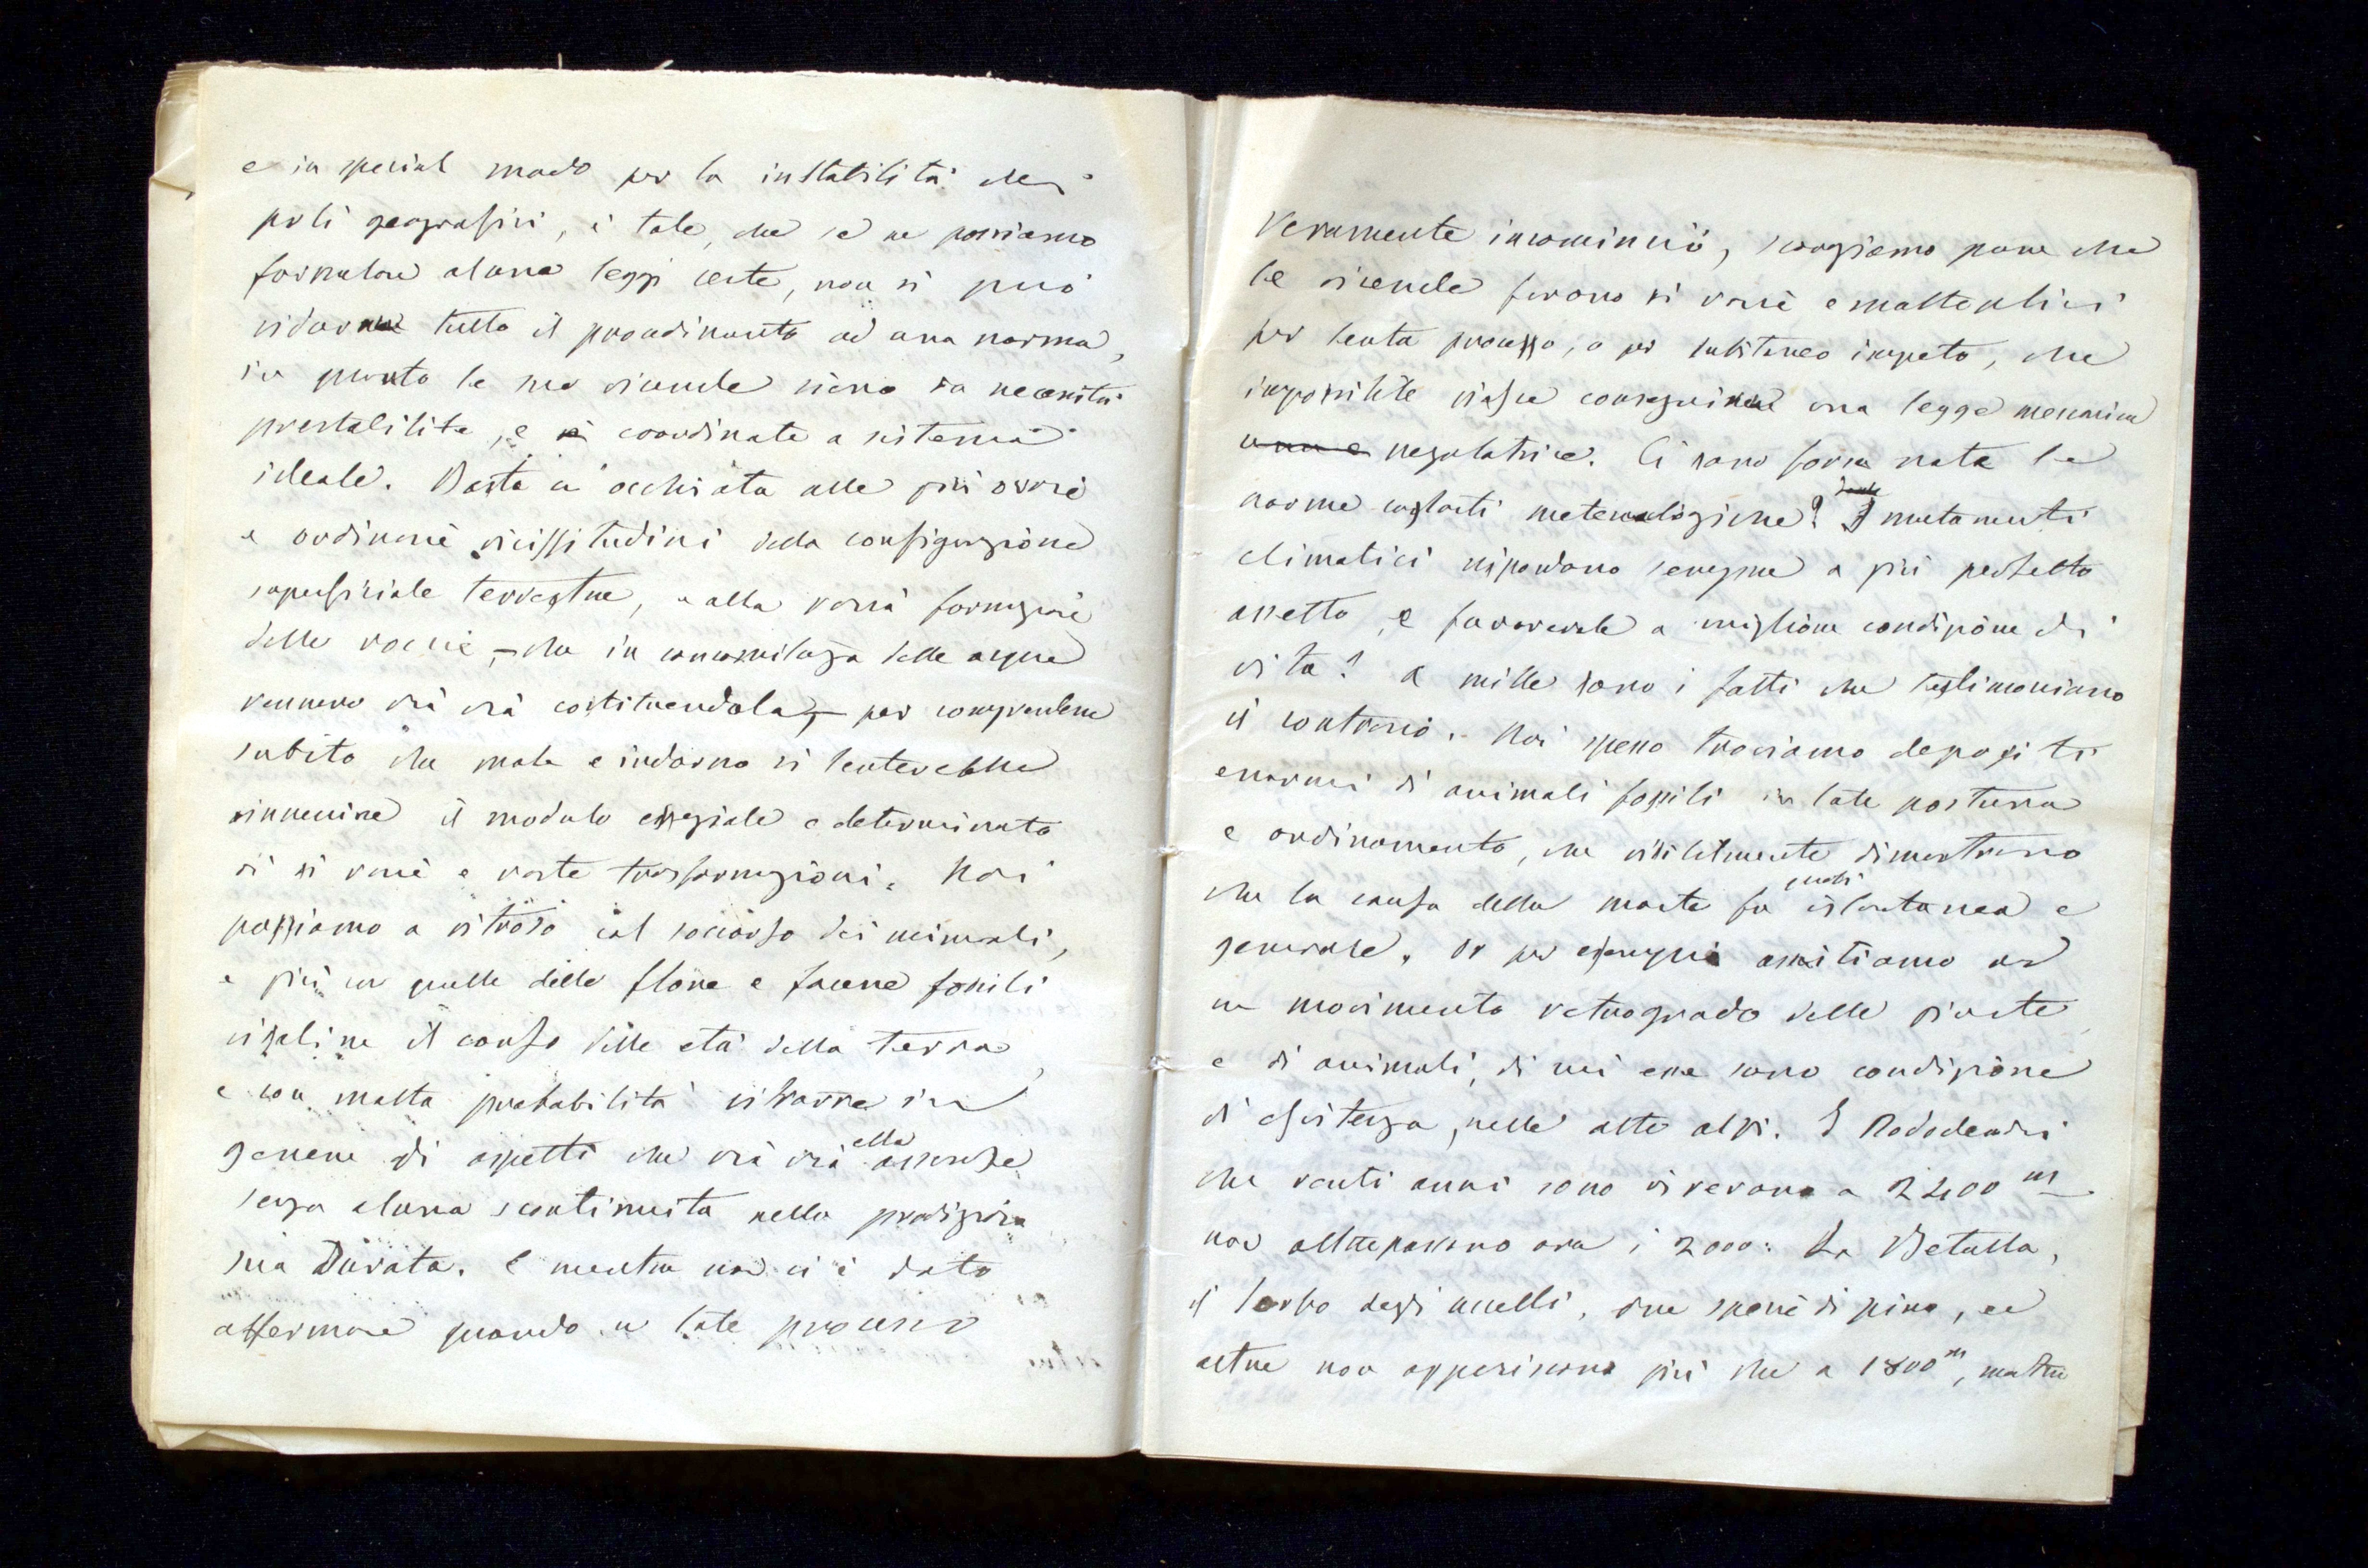 e in special modo per la instabilità dei
poli geografici, è tale, che se ne possiamo
formulare alcune leggi certe, non si può
ridurne tutto il procedimento ad una norma,
in quanto le sue vicende sieno da necessità
prestabilite, e coordinate a sistema
ideale. Basta un occhiata alle più ovvie
e ordinarie vicissitudini della configurazione
superficiale terrestre, e alla varia formazione
delle roccie, – che in concomitanza delle acque
vennero via via costituendola, – per comprendere
subito che male e indarno si tenterebbe
rinvenire il modulo essenziale e determinato
di si varie e vaste trasformazioni. Noi
possiamo a ritroso col soccorso dei minerali,
e più con quello delle flore e faune fossili
risalire il corso delle età della terra,
e con molta probabilità ritrarre in
genere gli aspetti che via via ella assunse
senza alcuna scontinuità nella prodigiosa
sua durata. E mentre non ci è dato
affermare quando un tale processo
veramente incominciò, scorgiamo pure che
le vicende furono si varie e molteplici
per lento processo, o per subitaneo impeto, che
impossibile riesce conseguirne una legge meccanica
una e regolatrice. Ci sono forse note le
norme costanti meteorologiche? I mutamenti
climatici rispondono sempre a più perfetto
assetto, e favorevole a migliore condizione di
vita? A mille sono i fatti che testimoniano
il contrario. Noi spesso troviamo depositi
enormi di animali fossili in tale postura
e ordinamento, che visibilmente dimostrano
che la causa della morte fu quasi istantanea e
generale. Or per esempio assistiamo ad
un movimento retrogrado delle piante
e di animali, di cui esse sono condizione
di esistenza, nelle alte alpi. I Rododendri
che venti anni sono vivevano a 2400 m
non oltrepassano ora i 2000: La Betulla,
il Sorbo degli uccelli, due specie di pino, ed
altre non appariscono più che a 1800 m, mentre